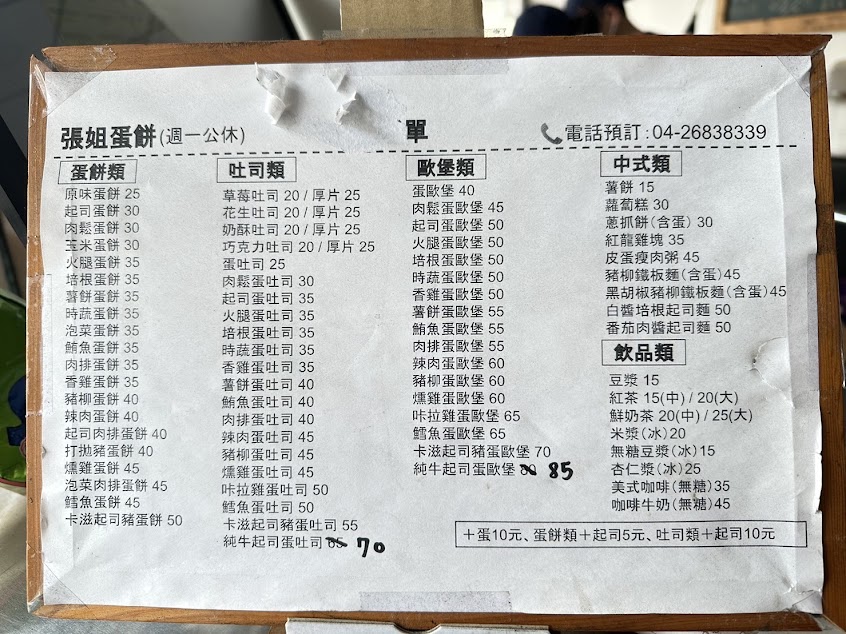 張姐蛋餅(週一公休)
單
電話預訂:04-26838339
蛋餅類
原味蛋餅 25
起司蛋餅 30
肉鬆蛋餅 30
玉米蛋餅 30
火腿蛋餅 35
培根蛋餅 35
薯餅蛋餅 35
時蔬蛋餅 35
泡菜蛋餅 35
鮪魚蛋餅 35
肉排蛋餅 35
香雞蛋餅 35
豬柳蛋餅 40
辣肉蛋餅 40
起司肉排蛋餅 40
打拋豬蛋餅 40
燻雞蛋餅 45
泡菜肉排蛋餅 45
鱈魚蛋餅 45
卡滋起司豬蛋餅 50
吐司類
草莓吐司 20 / 厚片 25
花生吐司 20 / 厚片 25
奶酥吐司 20 / 厚片 25
巧克力吐司 20 / 厚片 25
蛋吐司 25
肉鬆蛋吐司 30
起司蛋吐司 35
火腿蛋吐司 35
培根蛋吐司 35
時蔬蛋吐司 35
香雞蛋吐司 35
薯餅蛋吐司 40
鮪魚蛋吐司 40
肉排蛋吐司 40
辣肉蛋吐司 45
豬柳蛋吐司 45
燻雞蛋吐司 45
咔拉雞蛋吐司 50
鱈魚蛋吐司 50
卡滋起司豬蛋吐司 55
純牛起司蛋吐司 70
歐堡類
蛋歐堡 40
肉鬆蛋歐堡 45
起司蛋歐堡 50
火腿蛋歐堡 50
培根蛋歐堡 50
時蔬蛋歐堡 50
香雞蛋歐堡 50
薯餅蛋歐堡 55
鮪魚蛋歐堡 55
肉排蛋歐堡 55
辣肉蛋歐堡 60
豬柳蛋歐堡 60
燻雞蛋歐堡 60
咔拉雞蛋歐堡 65
鱈魚蛋歐堡 65
卡滋起司豬蛋歐堡 70
純牛起司蛋歐堡 85
中式類
薯餅 15
蘿蔔糕 30
蔥抓餅(含蛋) 30
紅龍雞塊 35
皮蛋瘦肉粥 45
豬柳鐵板麵(含蛋)45
黑胡椒豬柳鐵板麵(含蛋)45
白醬培根起司麵 50
番茄肉醬起司麵 50
飲品類
豆漿 15
紅茶 15(中) / 20(大)
鮮奶茶 20(中) / 25(大)
米漿(冰)20
無糖豆漿(冰)15
杏仁漿(冰)25
美式咖啡(無糖)35
咖啡牛奶(無糖)45
＋蛋10元、蛋餅類＋起司5元、吐司類＋起司10元